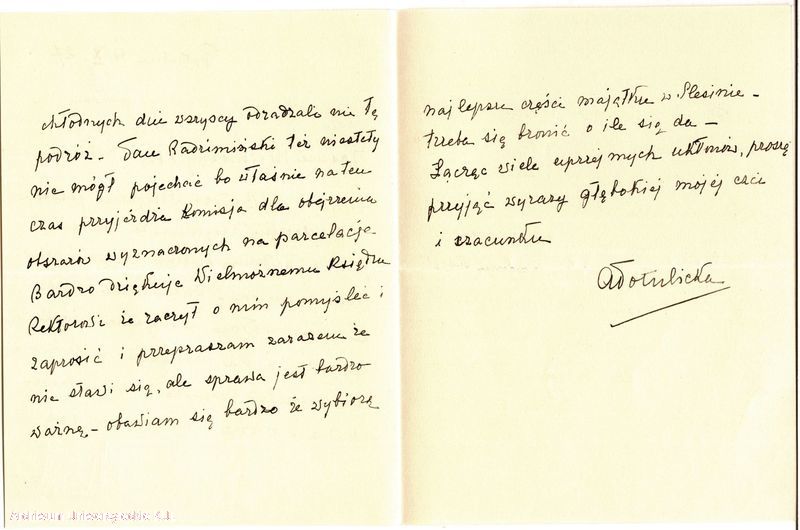 chłodnych dni wszyscy odradzali nie tę
podróż - Pan Radzimiński też niestety
nie mógł pojechać bo właśnie na ten
czas przyjeżdża Komisja dla obejrzenia
obszarów wyznaczonych na parcelację.
Bardzo dziękuję Wielmożnemu Księdzu
Rektorowi że raczył o nim pomyśleć i
zaprosić i przepraszam zarazem że
nie stawi się, ale sprawa jest bardzo
ważną - obawiam się bardzo że wybiorą
najlepsze części majątku w Slesinie -
trzeba się bronić o ile się da -
Łącząc wiele uprzejmych ukłonów, proszę
przyjąć wyrazy głębokiej mojej czci
i szacunku